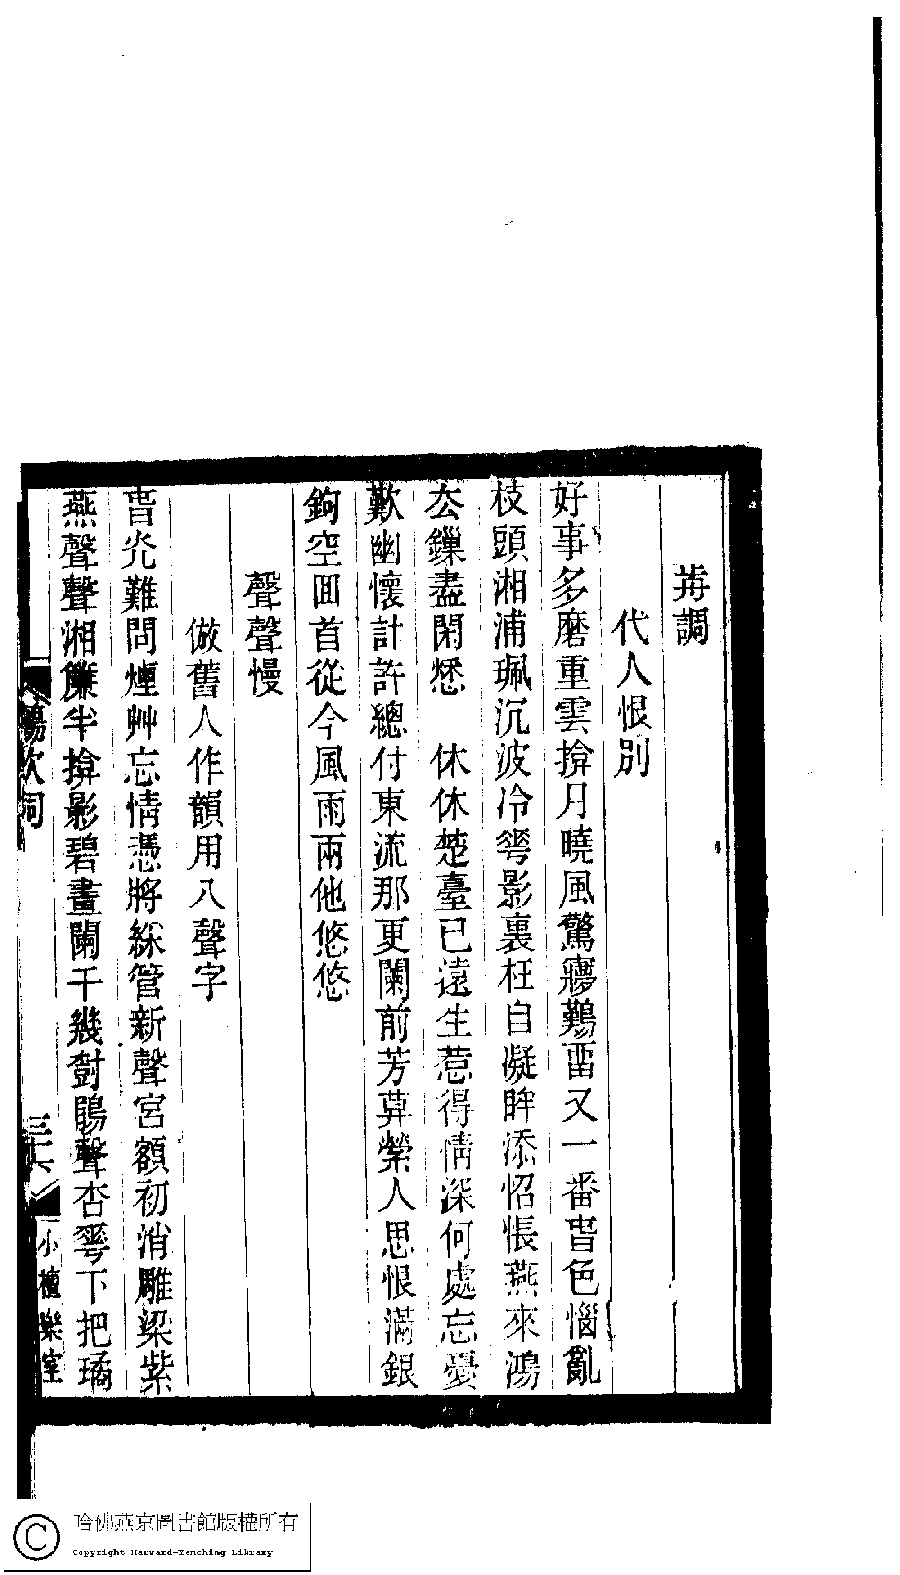 苒調
代人恨別
好事多磨重雲揜月曉風驚寢鷄畱又一番旾色惱亂
枝頭湘浦珮沉波冷芲影裏枉自凝眸添怊悵燕來鴻
厺鏁盡閑愁　休休楚臺已遠生惹得情深何處忘憂
歎幽懷計許總付東流那更闌前芳草縈人思恨滿銀
鉤空回首從今風雨兩他悠悠
聲聲慢
倣舊人作韻用八聲字
旾灮難問煙艸忘情憑將綵管新聲宮額初消雕梁紫
燕聲聲湘簾半揜影碧畫闌干幾對鶗聲杏芲下把璚
歈詞
三六
小檀欒室
哈佛燕京圖書館版權所有
Copyright Harvard-Yenching Library